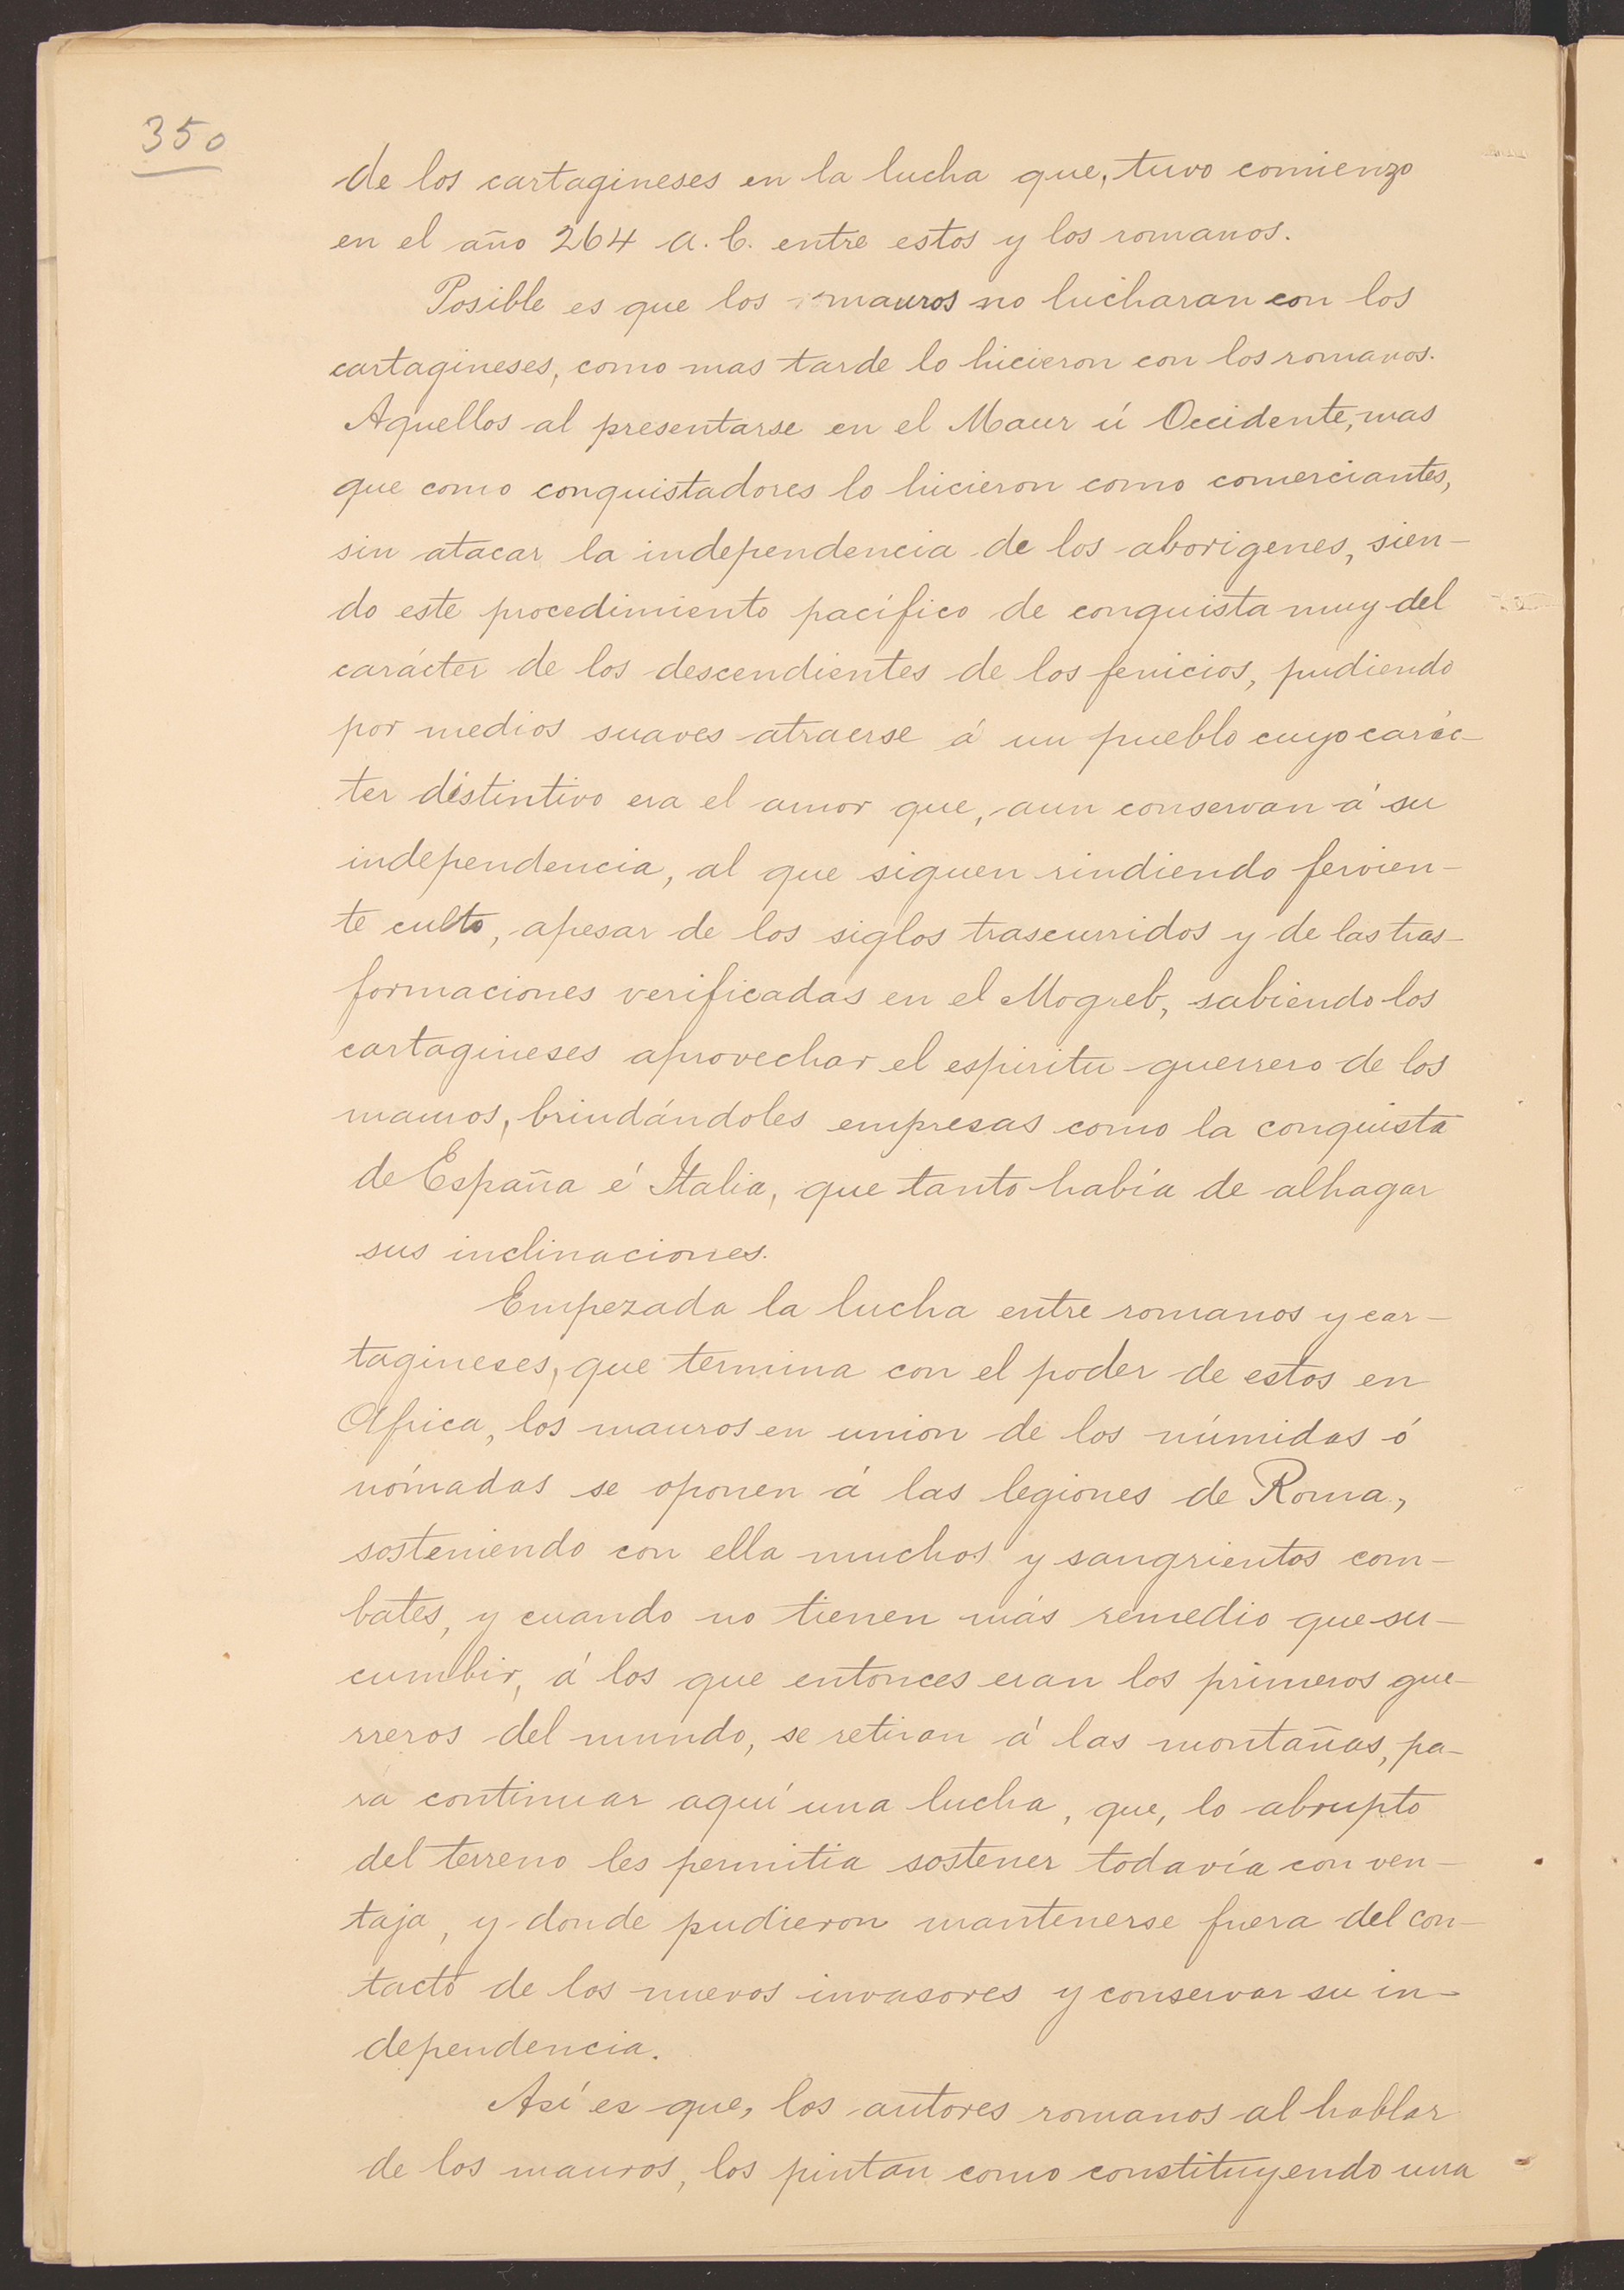 350
de los cartagineses en la lucha que, tuvo comienzo
en el año 264 a. C. entre estos y los romanos.
Posible es que los mauros no lucharan con los
cartagineses, como mas tarde lo hicieron con los romanos.
Aquellos al presentarse en el Maur ú Occidente, mas
que como conquistadores lo hicieron como comerciantes,
sin atacar la independencia de los aborigenes, sien-
do este procedimiento pacífico de conquista muy del
carácter de los descendientes de los fenicios, pudiendo
por medios suaves atraerse á un pueblo cuyo carác-
ter distintivo era el amor que, aun conservan á su
independencia, al que siguen rindiendo fervien-
te culto, apesar de los siglos trascurridos y de las tras-
formaciones verificadas en el Mogreb, sabiendo los
cartagineses aprovechar el espiritu guerrero de los
mauros, brindándoles empresas como la conquista
de España é Italia, que tanto había de alhagar
sus inclinaciones.
Empezada la lucha entre romanos y car-
tagineses, que termina con el poder de estos en
Africa, los mauros en union de los númidas ó
nómadas se oponen á las legiones de Roma,
sosteniendo con ella muchos y sangrientos com-
bates, y cuando no tienen más remedio que su-
cumbir, á los que entonces eran los primeros gue-
rreros del mundo, se retiran á las montañas, pa-
ra continuar aquí una lucha, que, lo abrupto
del terreno les permitia sostener todavía con ven-
taja, y donde pudieron mantenerse fuera del con-
tacto de los nuevos invasores y conservar su in-
dependencia.
Así es que, los autores romanos al hablar
de los mauros, los pintan como constituyendo una